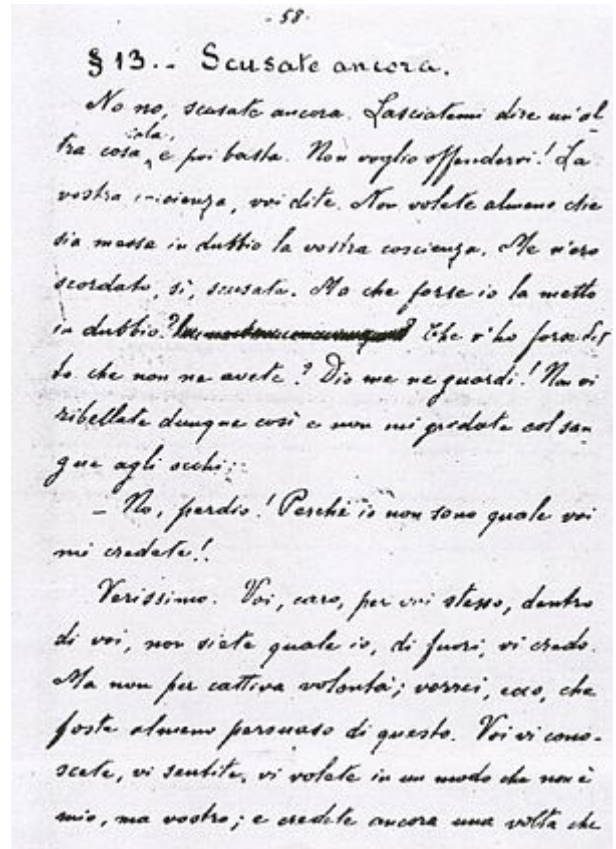 - 58 -
§ 13. - Scusate ancora.
No no, scusate ancora. Lasciatemi dire un'al
tra cosa sola, e poi basta. Non voglio offendervi! La
vostra coscienza, voi dite. Non volete almeno che
sia messa in dubbio la vostra coscienza. Me n'ero
scordato, sì, scusate. Ma che forse io la metto
in dubbio? Che v'ho forse det
to che non ne avete? Dio me ne guardi! Non vi
ribellate dunque così e non mi gredate col san
gue agli occhi:
- No, perdio! Perchè io non sono quale voi
mi credete!
Verissimo. Voi, caro, per voi stesso, dentro
di voi, non siete quale io, di fuori, vi credo.
Ma non per cattiva volontà; vorrei, ecco, che
foste almeno persuaso di questo. Voi vi cono-
scete, vi sentite, vi volete in un modo che non è
mio, ma vostro; e credete ancora una volta che